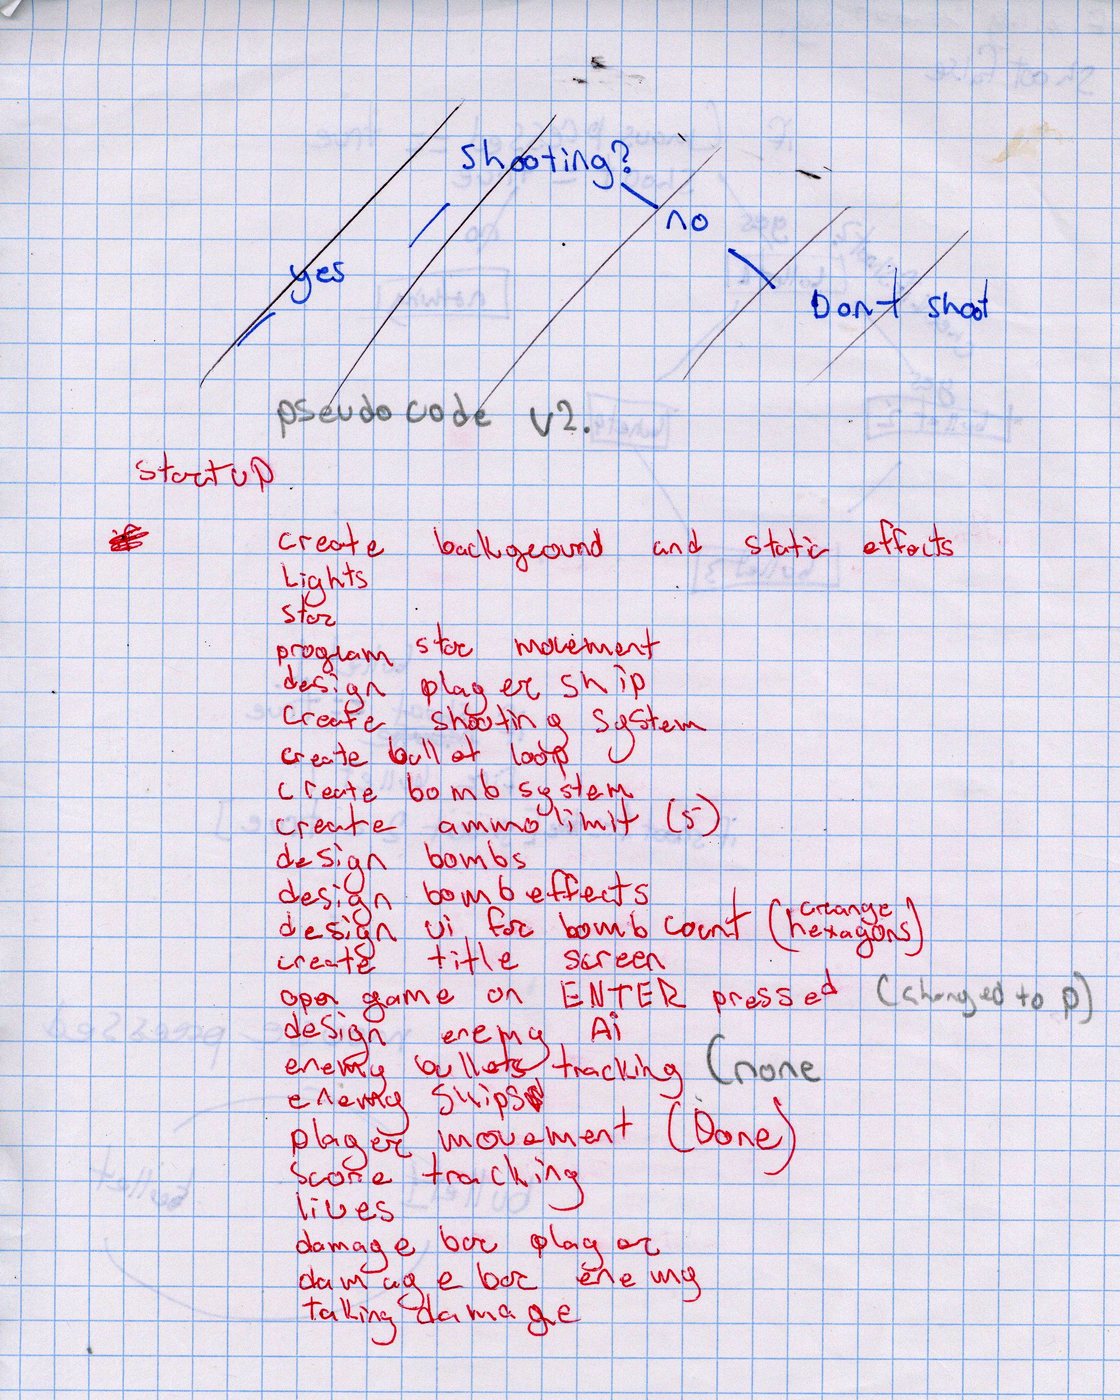 Shooting?
no
yes
Don't shoot
pseudo code v2.
Startup
create background and static effects
Lights
star
program star movement
design player ship
Create shooting system
create bullet loop
create bomb system
create ammo limit (5)
design bombs
design bomb effects
design ui for bomb count (orange hexagons)
create title screen
open game on ENTER pressed (changed to p)
design enemy Ai
enemy bullets tracking (none
enemy ships
player movement (Done)
Score tracking
lives
damage bar player
damage bar enemy
taking damage